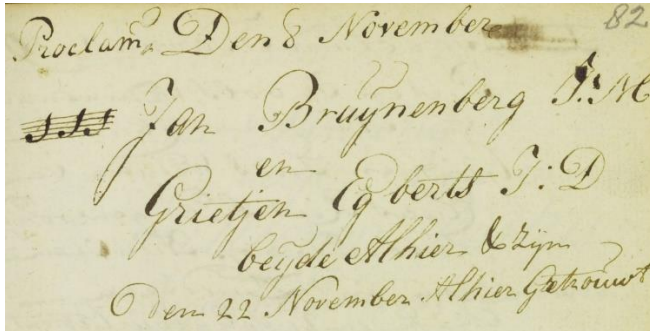 Proclam. Den 8 November 82
Jan Bruÿnenberg J:M
en
Grietjen Egberts J:D
beyde Alhier & zyn
Den 22 November Alhier Getrouwt